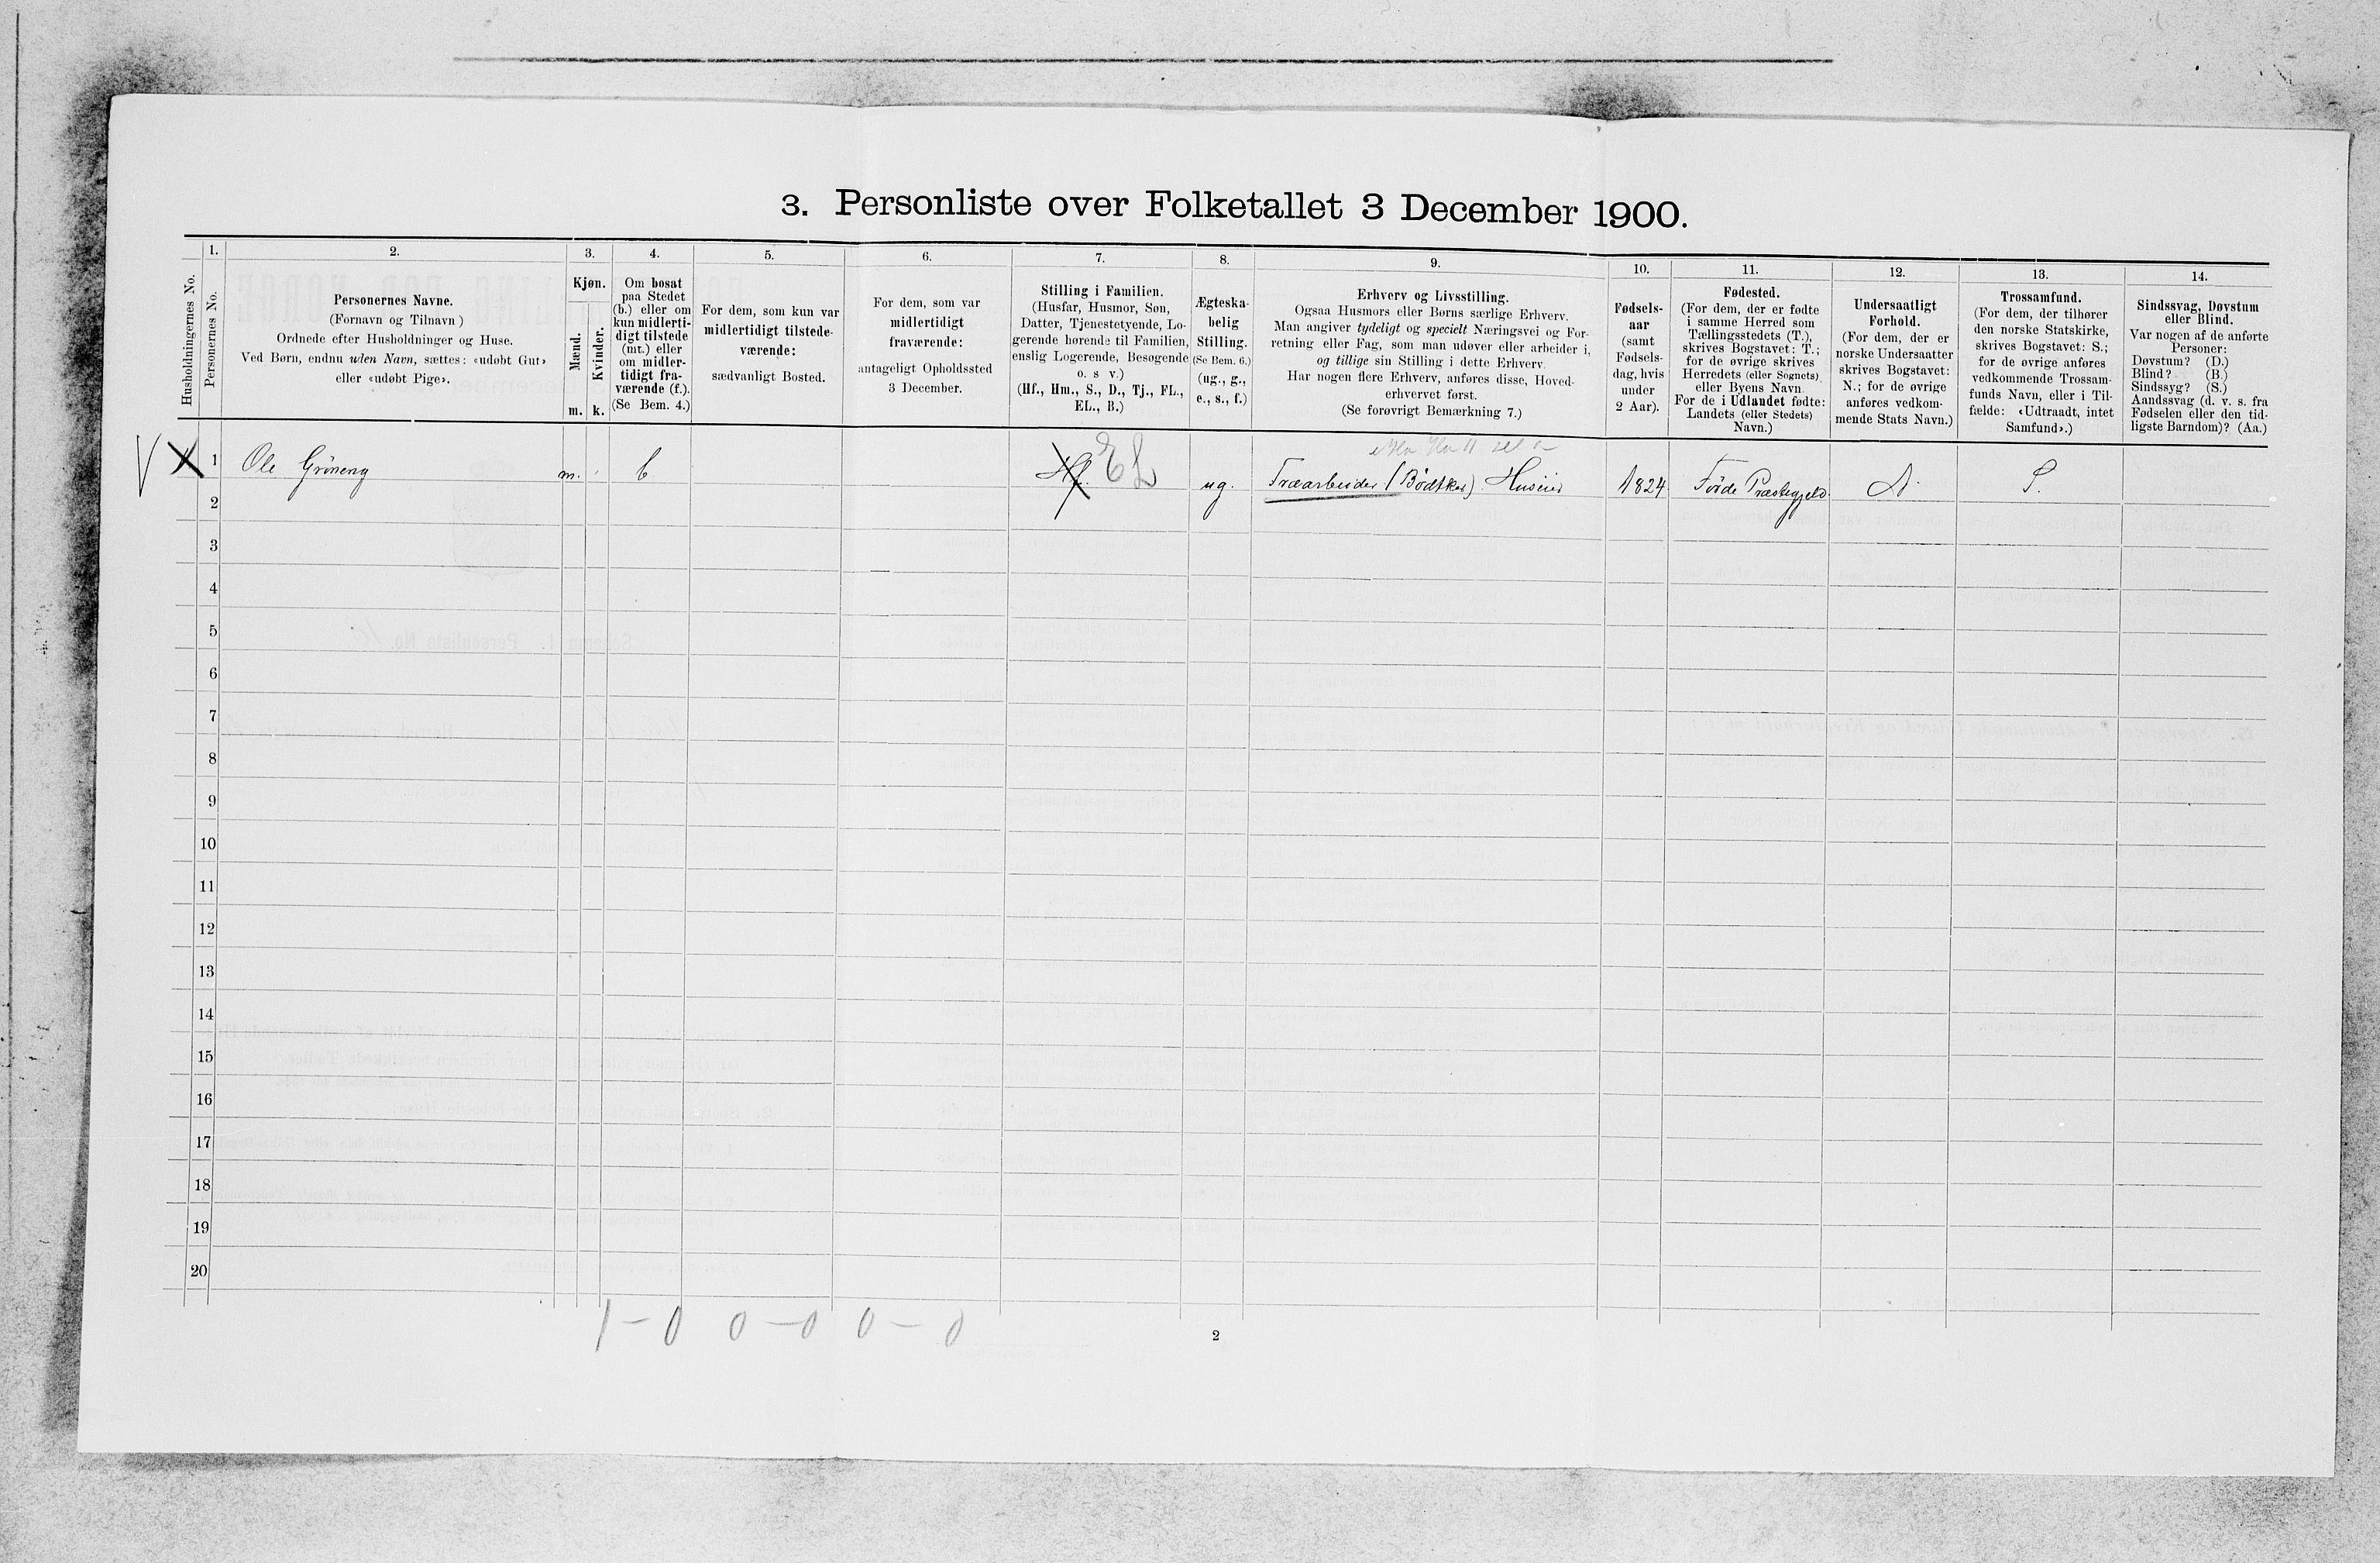 3. Personliste over Folketallet 3 December 1900.
Husholdningernes No.
1.
Personernes No.
2.
Personernes Navne.
(Fornavn og Tilnavn)
Ordnede efter Husholdninger og Huse.
Ved Børn, endnu uden Navn, sættes: «udøbt Gut»
eller «udøbt Pige».
3.
Kjøn.
Mænd.
Kvinder.
m. k.
4.
Om bosat
paa Stedet
(b.) eller om
kun midlerti-
digt tilstede
(mt.) eller
om midler-
tidigt fra-
værende (f.).
(Se Bem. 4.)
5.
For dem, som kun var
midlertidigt tilstede-
værende:
sædvanligt Bosted.
6.
For dem, som var
midlertidigt
fraværende:
antageligt Opholdssted
3 December.
7.
Stilling i Familien.
(Husfar, Husmor, Søn,
Datter, Tjenestetyende, Lo-
gerende hørende til Familien,
enslig Logerende, Besøgende
o. s v.)
(Hf., Hm., S., D., Tj., FL.,
EL., B.)
8.
Ægteska-
belig
Stilling.
(Se Bem. 6.)
(ug., g.,
e., s., f.)
9.
Erhverv og Livsstilling.
Ogsaa Husmors eller Børns særlige Erhverv.
Man angiver tydeligt og specielt Næringsvei og For-
retning eller Fag, som man udøver eller arbeider i,
og tillige sin Stilling i dette Erhverv.
Har nogen flere Erhverv, anføres disse, Hoved-
erhvervet først.
(Se forøvrigt Bemærkning 7.)
10.
Fødsels-
aar
(samt
Fødsels-
dag, hvis
under
2 Aar).
11.
Fødested.
(For dem, der er fødte
i samme Herred som
Tællingsstedets (T.),
skrives Bogstavet: T.;
for de øvrige skrives
Herredets (eller Sognets)
eller Byens Navn.
For de i Udlandet fødte:
Landets (eller Stedets)
Navn.)
12.
Undersaatligt
Forhold.
(For dem, der er
norske Undersaatter
skrives Bogstavet:
N.; for de øvrige
anføres vedkom-
mende Stats Navn.)
13.
Trossamfund.
(For dem, der tilhører
den norske Statskirke,
skrives Bogstavet: S.;
for de øvrige anføres
vedkommende Trossam-
funds Navn, eller i Til-
fælde: «Udtraadt, intet
Samfund».)
14.
Sindssvag, Døvstum
eller Blind.
Var nogen af de anførte
Personer:
Døvstum? (D.)
Blind? (B.)
Sindssyg? (S.)
Aandssvag (d. v. s. fra
Fødselen eller den tid-
ligste Barndom)? (Aa.)
1 Ole Gröneng m. b EL ug. Træarbeider (Bødtker) Huseier 1824 Førde Præstegjeld. N. S.
2
3
4
5
6
7
8
9
10
11
12
13
14
15
16
17
18
19
20
1-0 0-0 0-0
2